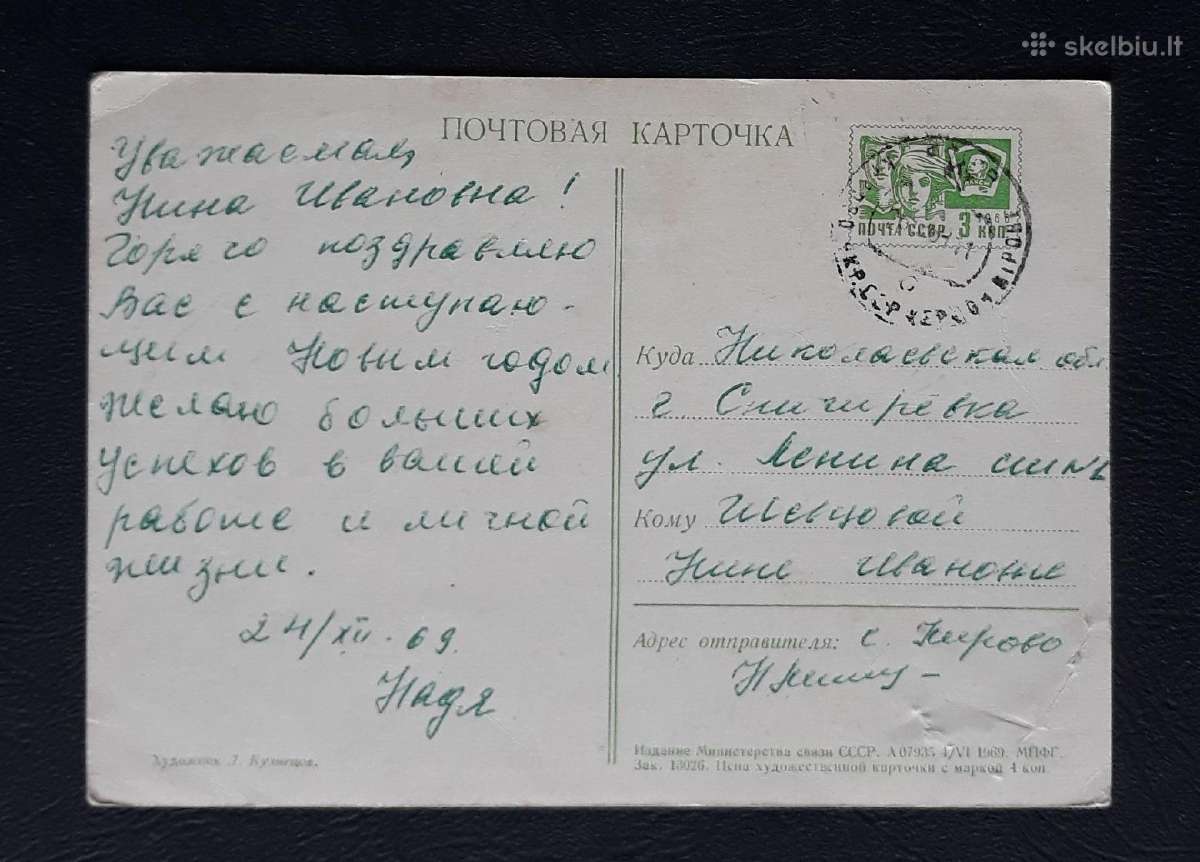 skelbiu.lt
ПОЧТОВАЯ КАРТОЧКА
Уважаемая,
Нина Ивановна!
Горячо поздравляю
Вас с наступаю-
щим Новым годом
желаю больших
успехов в вашей
работе и личной
жизни.
24/XII-69.
Надя
Художник Л. Кузнецов.
ПОЧТА СССР 3 КОП
1966
Куда Николаевская обл
г Снигирёвка
ул. Ленина
Кому Шевцовой
Нине Ивановне
Адрес отправителя: с. Кирово
Издание Министерства связи СССР. А 07935 4/VI 1969. МПФГ.
Зак. 13026. Цена художественной карточки с маркой 4 коп.